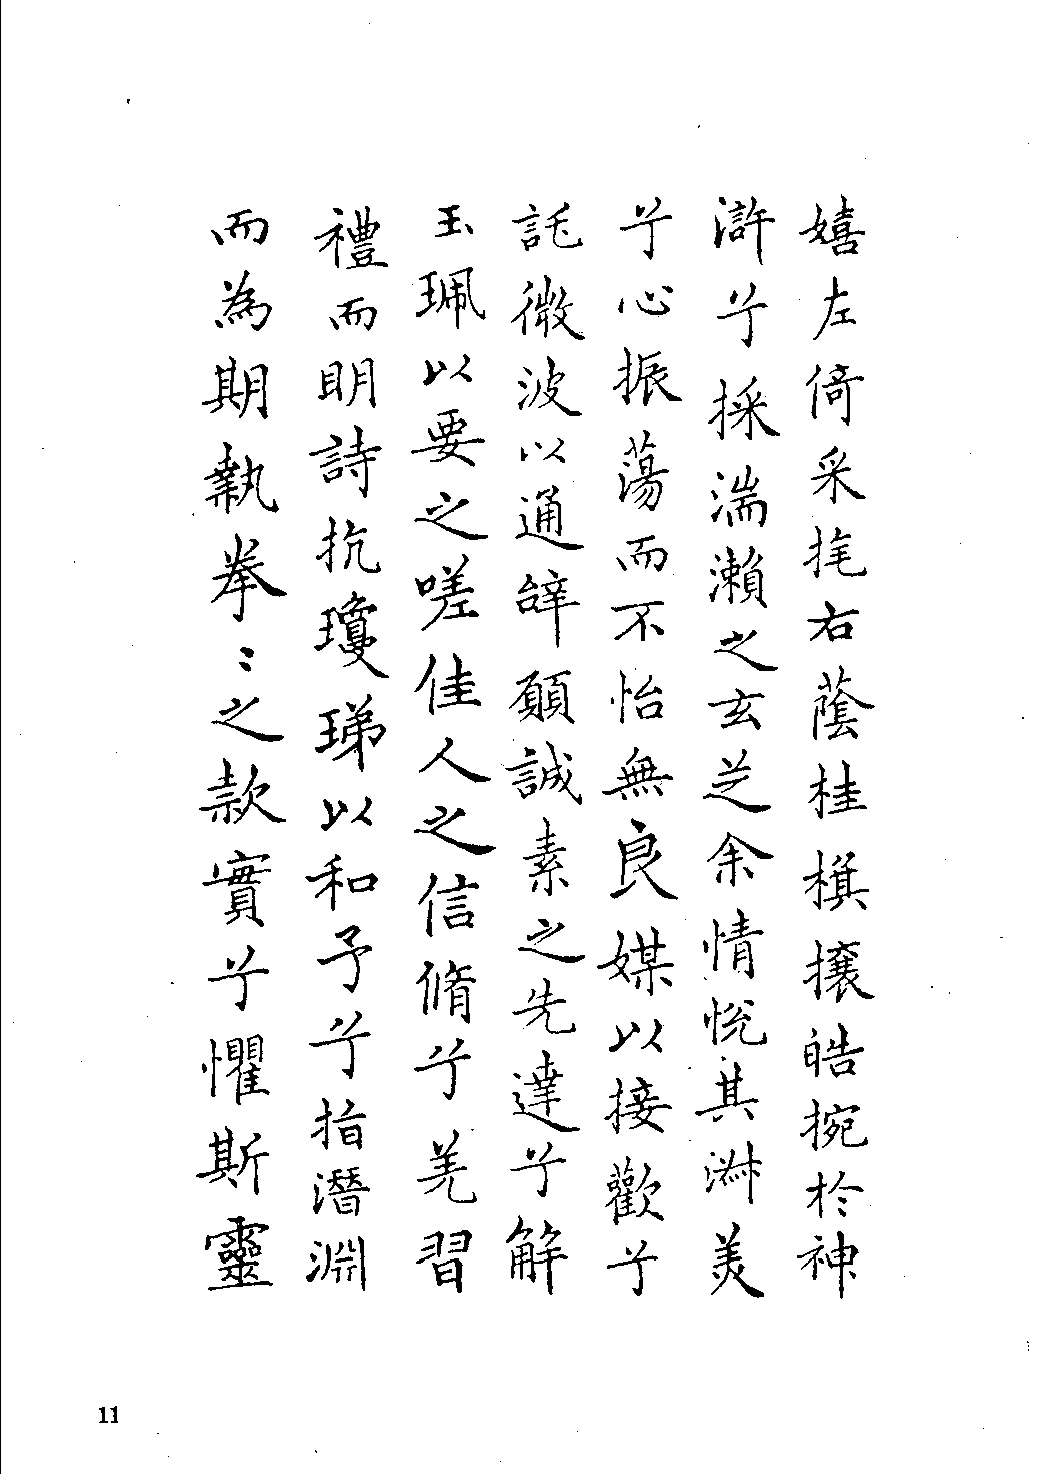 嬉左倚采旄右蔭桂橫攘皓捥於神
滸兮採湍瀨之玄芝余情悅其淑美
兮心振蕩而不怡無良媒以接歡兮
託微波以通辝願誠素之先達兮解
玉珮以要之嗟佳人之信脩兮羌習
禮而明詩抗瓊珶以和予兮指潛淵
而為期執拳〻之款實兮懼斯靈
11